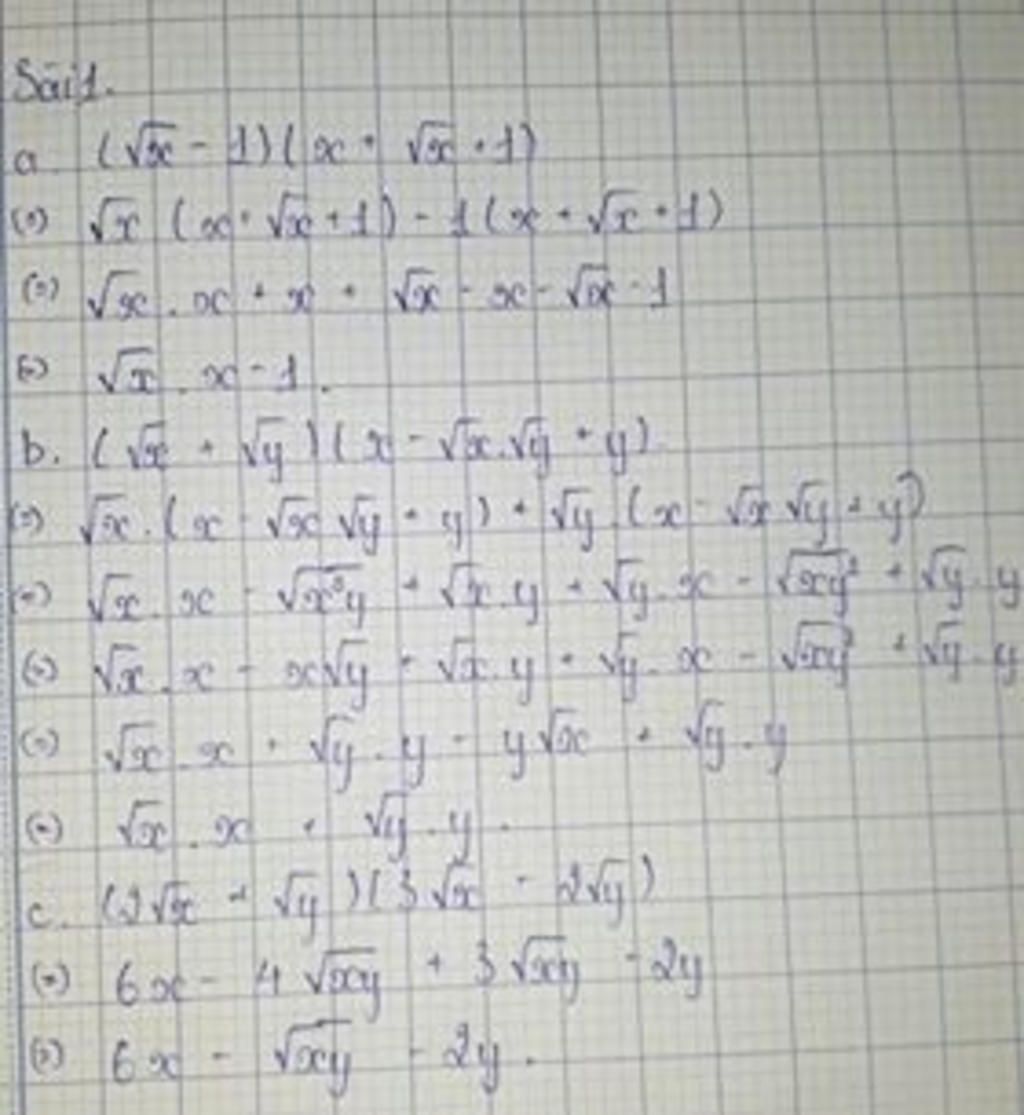 Bài 1.
a. (√x - 1)(x + √x + 1)
(=) √x (x + √x + 1) - 1(x + √x + 1)
(=) √x . x + x + √x - x - √x - 1
(=) √x . x - 1.
b. (√x + √y)(x - √x.√y + y)
(=) √x.(x - √x √y + y) + √y.(x - √x √y + y)
(=) √x . x - √x²y + √x.y + √y.x - √xy² + √y.y
(=) √x . x - x√y + √x.y + √y.x - √xy² + √y.y
(=) √x . x + √y.y - y√x + √y.y
(=) √x . x + √y.y.
c. (2√x + √y)(3√x - 2√y)
(=) 6x - 4√xy + 3√xy - 2y
(=) 6x - √xy - 2y.